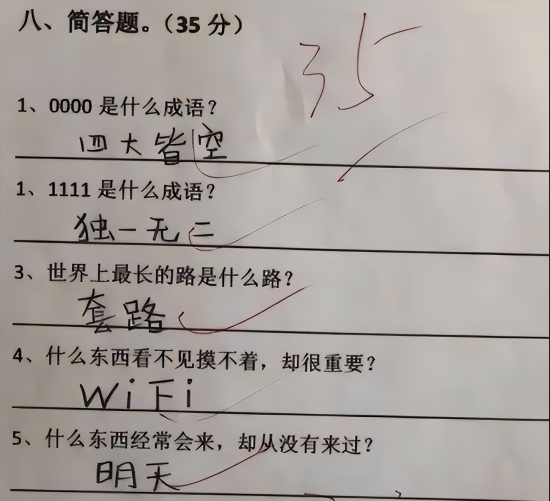 八、简答题。（35 分）
35
1、0000 是什么成语？
四大皆空
1、1111 是什么成语？
独一无二
3、世界上最长的路是什么路？
套路
4、什么东西看不见摸不着，却很重要？
WiFi
5、什么东西经常会来，却从没有来过？
明天